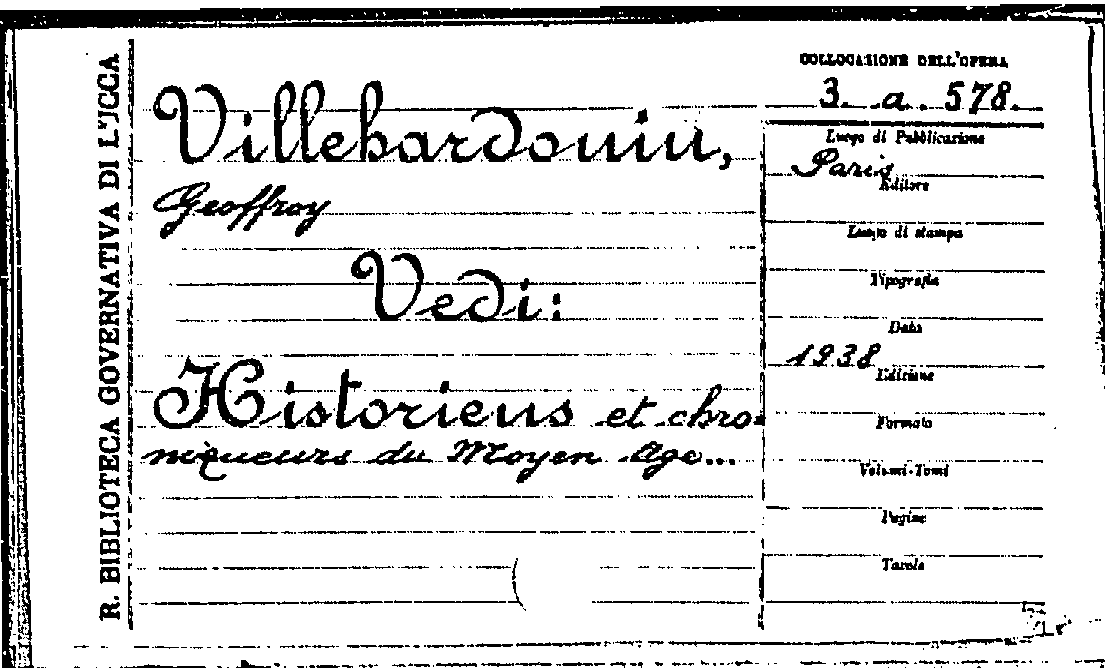 R. BIBLIOTECA GOVERNATIVA DI LUCCA
Villehardouin,
Geoffroy
Vedi:
Historiens et chro-
niqueurs du Moyen Age...
COLLOCAZIONE DELL'OPERA
3. a. 578.
Luogo di Pubblicazione
Paris
Editore
Luogo di stampa
Tipografia
Data
1938
Edizione
Formato
Volumi-Tomi
Pagine
Tavole